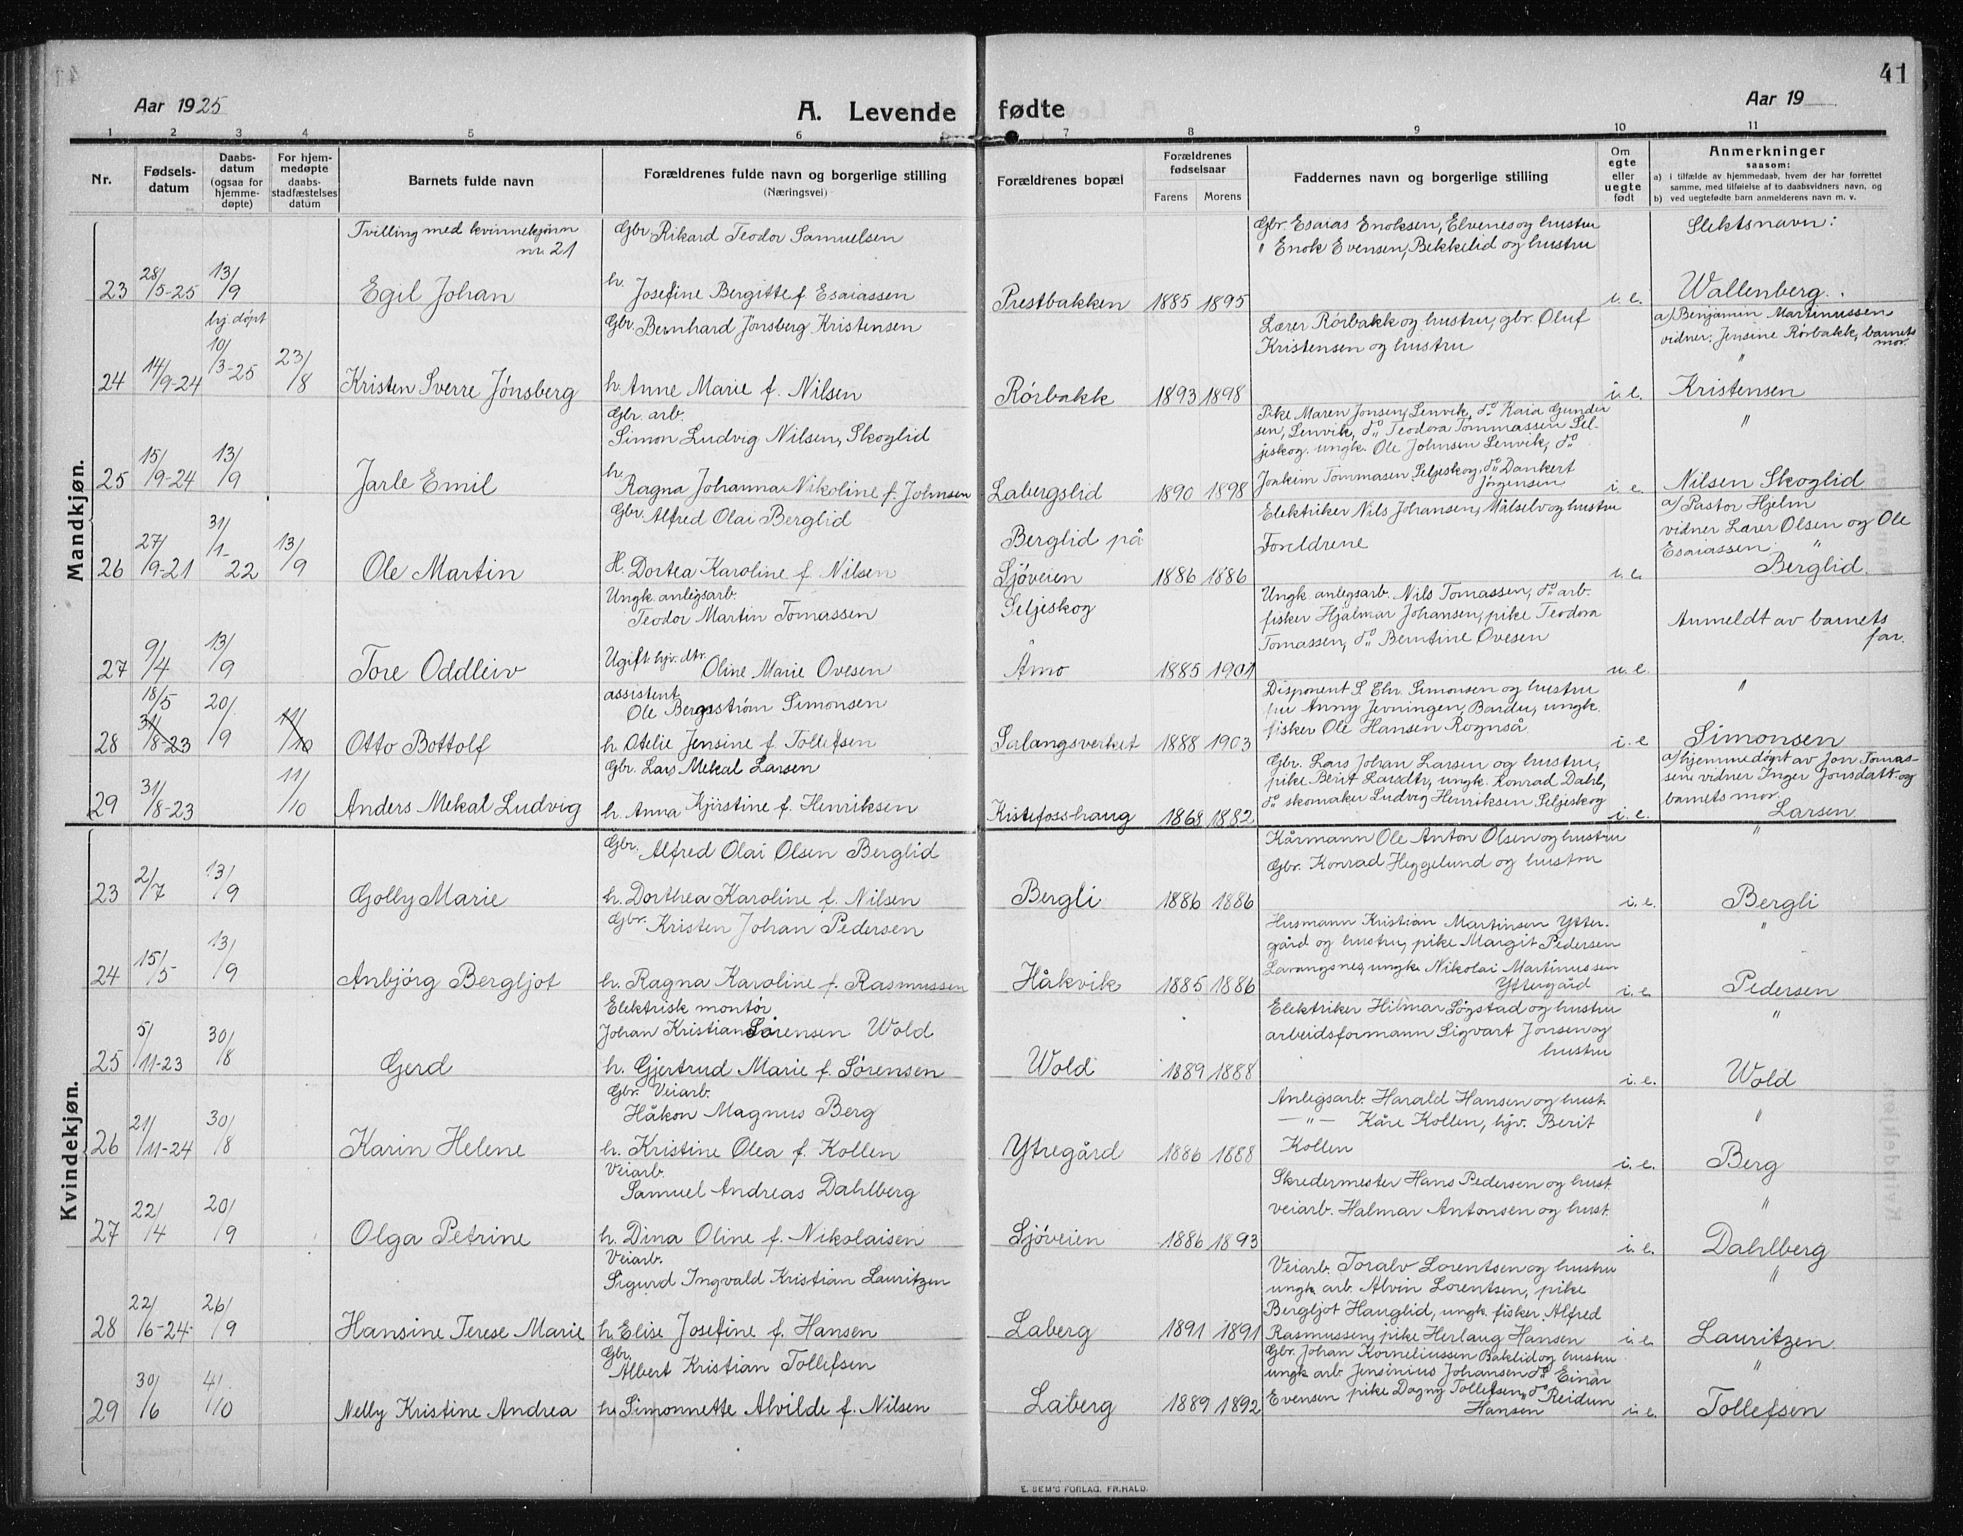 41
Aar 1925
A. Levende fødte
Aar 19
1 2 3 4 5 6 7 8 9 10 11
Nr.
Fødsels-
datum
Daabs-
datum
(ogsaa for
hjemme-
døpte)
For hjem-
medøpte
daabs-
stadfæstelses
datum
Barnets fulde navn
Forældrenes fulde navn og borgerlige stilling
(Næringsvei)
Forældrenes bopæl
Forældrenes
fødselsaar
Farens Morens
Faddernes navn og borgerlige stilling
Om
egte
eller
uegte
født
Anmerkninger
saasom:
a) i tilfælde av hjemmedaab, hvem der har forrettet
samme, med tilføielse af to daabsvidners navn, og
b) ved uegtefødte barn anmelderens navn m. v.
Mandkjøn.
Tvilling med kvinnekjønn
nr. 21
Gbr. Rikard Teodor Samuelsen
Gbr. Esaias Enoksen, Elvenes og hustru
" Enok Evensen, Bekkelid og hustru
Slektsnavn:
23 28/5-25 13/9 Egil Johan
h. Josefine Bergitte f. Esaiassen
Prestbakken 1885 1895 i. e. Wallenberg.
hj. døpt
Gbr. Bernhard Jønsberg Kristensen
Lærer Rørbakk og hustru, gbr. Oluf
Kristensen og hustru
a) Benjamin Martinussen
vidner: Jensine Rørbakk, barnets
mor.
"
24 14/9-24 10/3-25 23/8 Kristen Sverre Jønsberg
h. Anne Marie f. Nilsen
Rørbakk 1893 1898 i. e. Kristensen
Gbr. arb.
Simon Ludvig Nilsen, Skoglid
Pike Maren Jonsen, Lenvik, do Kaia Gunder
sen, Lenvik, do Teodora Tommassen Sel-
jeskog. ungk. Ole Johnsen Lenvik, do
Joakim Tommasen Seljeskog. do Dankert
Jørgensen
"
25 15/9-24 13/9 Jarle Emil
h. Ragna Johanna Nikoline f. Johnsen
Labergslid 1890 1898 i. e. Nilsen Skoglid
Gbr. Alfred Olai Berglid
Elektriker Nils Johansen, Målselv og hustru
Foreldrene
a) Pastor Hjelm
vidner Lærer Olsen og Ole
Esaiassen. "
26 27/9-21 31/1-22 13/9 Ole Martin
H. Dortea Karoline f. Nilsen
Berglid på
Sjøveien 1886 1886 i. e. Berglid.
Ungk. anlegsarb.
Teodor Martin Tomassen
Seljeskog
Ungk anlegsarb. Nils Tomassen, do arb.
fisker Hjalmar Johansen, pike Teodora
Tomassen, do Berntine Ovesen
Anmeldt av barnets
far.
27 9/4 13/9 Tore Oddleiv
Ugift hjv. dtr. Oline Marie Ovesen
Åmo 1885 1901 u. e.
assistent
Ole Bergsstrøm Simonsen
Disponent S. Chr. Simonsen og hustru
fru Anny Jevningen, Bardu, ungk.
fisker Ole Hansen Rognså
"
28 18/5 31/8-23 20/9 11/10 Otto Bottolf
h. Otelie Jensine f. Tollefsen
Salangsverket 1888 1903 i. e Simonsen
Gbr. Lars Mekal Larsen
Gbr. Lars Johan Larsen og hustru,
pike Berit Larsdtr, ungk. Konrad Dahl,
do skomaker Ludvig Henriksen Seljeskog
a) hjemmedøpt av Jon Tomas-
sen vidner Inger Jonsdatt. og
barnets mor.
29 31/8-23 11/10 Anders Mekal Ludvig
h. Anna Kjirstine f. Henriksen
Kistefosshaug 1868 1882 i. e. Larsen
Kvindekjøn.
Gbr. Alfred Olai Olsen Berglid
Kårmann Ole Anton Olsen og hustru
Gbr. Konrad Heggelund og hustru
"
23 2/7 13/9 Golly Marie
h. Dorthea Karoline f. Nilsen
Bergli 1886 1886 i. e. Bergli
Gbr. Kristen Johan Pedersen
Husmann Kristian Martinsen Ytter-
gård og hustru, pike Margit Pedersen
Lavangsnes, ungk. Nikolai Martinussen
Yttergård
"
24 15/5 13/9 Anbjørg Bergljot
h. Ragna Karoline f. Rasmussen
Håkvik 1885 1886 i. e Pedersen
Elektrisk montør
Johan Kristian Sørensen Wold
Elektriker Hilmar Søgstad og hustru
arbeidsformann Sigvart Jonsen og
hustru
"
25 5/11-23 30/8 Gerd
h. Gjertrud Marie f. Sørensen
Wold 1889 1888 i. e. Wold
Gbr. Veiarb.
Håkon Magnus Berg
Anlegsarb. Harald Hansen og hust.
—"— Kåre Kollen, hjv. Berit
Kollen
"
26 21/11-24 30/8 Karin Helene
h. Kristine Olea f. Kollen
Ytregård 1886 1888 i. e. Berg
Veiarb.
Samuel Andreas Dahlberg
Skredermester Hans Pedersen og hust.
veiarb. Halmar Antonsen og hust.
"
27 22/4 20/9 Olga Petrine
h. Dina Oline f. Nikolaisen
Sjøveien 1886 1893 i. e. Dahlberg
Veiarb.
Sigurd Ingvald Kristian Lauritzen
Veiarb. Toralv Lorentsen og hustru
ungk. arb. Alvin Lorentsen, pike
Bergljot Hauglid, ungk. fisker Alfred
Rasmussen, pike Herlaug Hansen
"
28 22/6-24 26/9 Hansine Terese Marie
h. Elise Josefine f. Hansen
Laberg 1891 1891 i. e. Lauritzen
Gbr.
Albert Kristian Tollefsen
Gbr. Johan Korneliussen Baklid og hustru
ungk arb. Jensenius Johansen do Einar
Evensen pike Dagny Tollefsen, do Reidun
Hansen
"
29 30/6 41/10 Nelly Kristine Andrea
h. Simonnette Alvilde f. Nilsen
Laberg 1889 1892 i. e. Tollefsen
E. SEM'S FORLAG, FR.HALD.